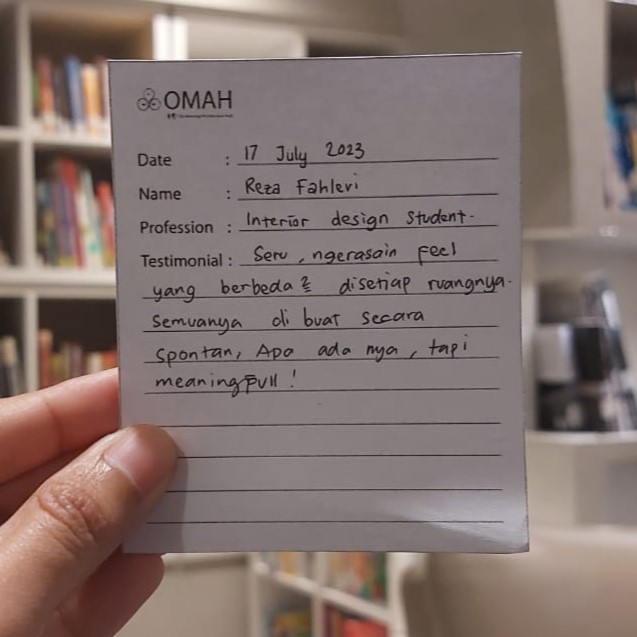 OMAH
Date : 17 July 2023
Name : Reza Fahlevi
Profession : Interior design student.
Testimonial : Seru, ngerasain feel
yang berbeda2 disetiap ruangnya.
Semuanya di buat secara
spontan, Apa ada nya, tapi
meaningfull!